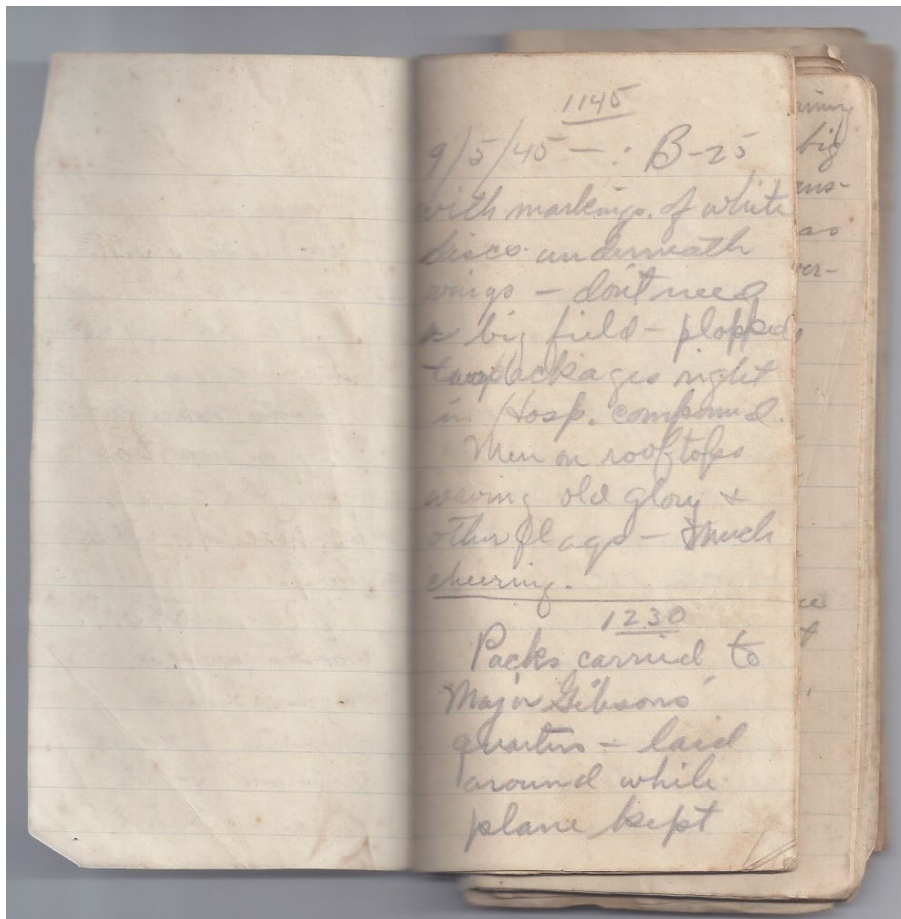 1145
9/5/45 — : B-25
with markings of white
discs underneath
wings — don't need
a big field — plopped
packages right
in Hosp. compound.
Men on rooftops
waving old glory &
other flags — much
cheering.
1230
Packs carried to
Major Gibsons'
quarters — laid
around while
plane kept
big
as